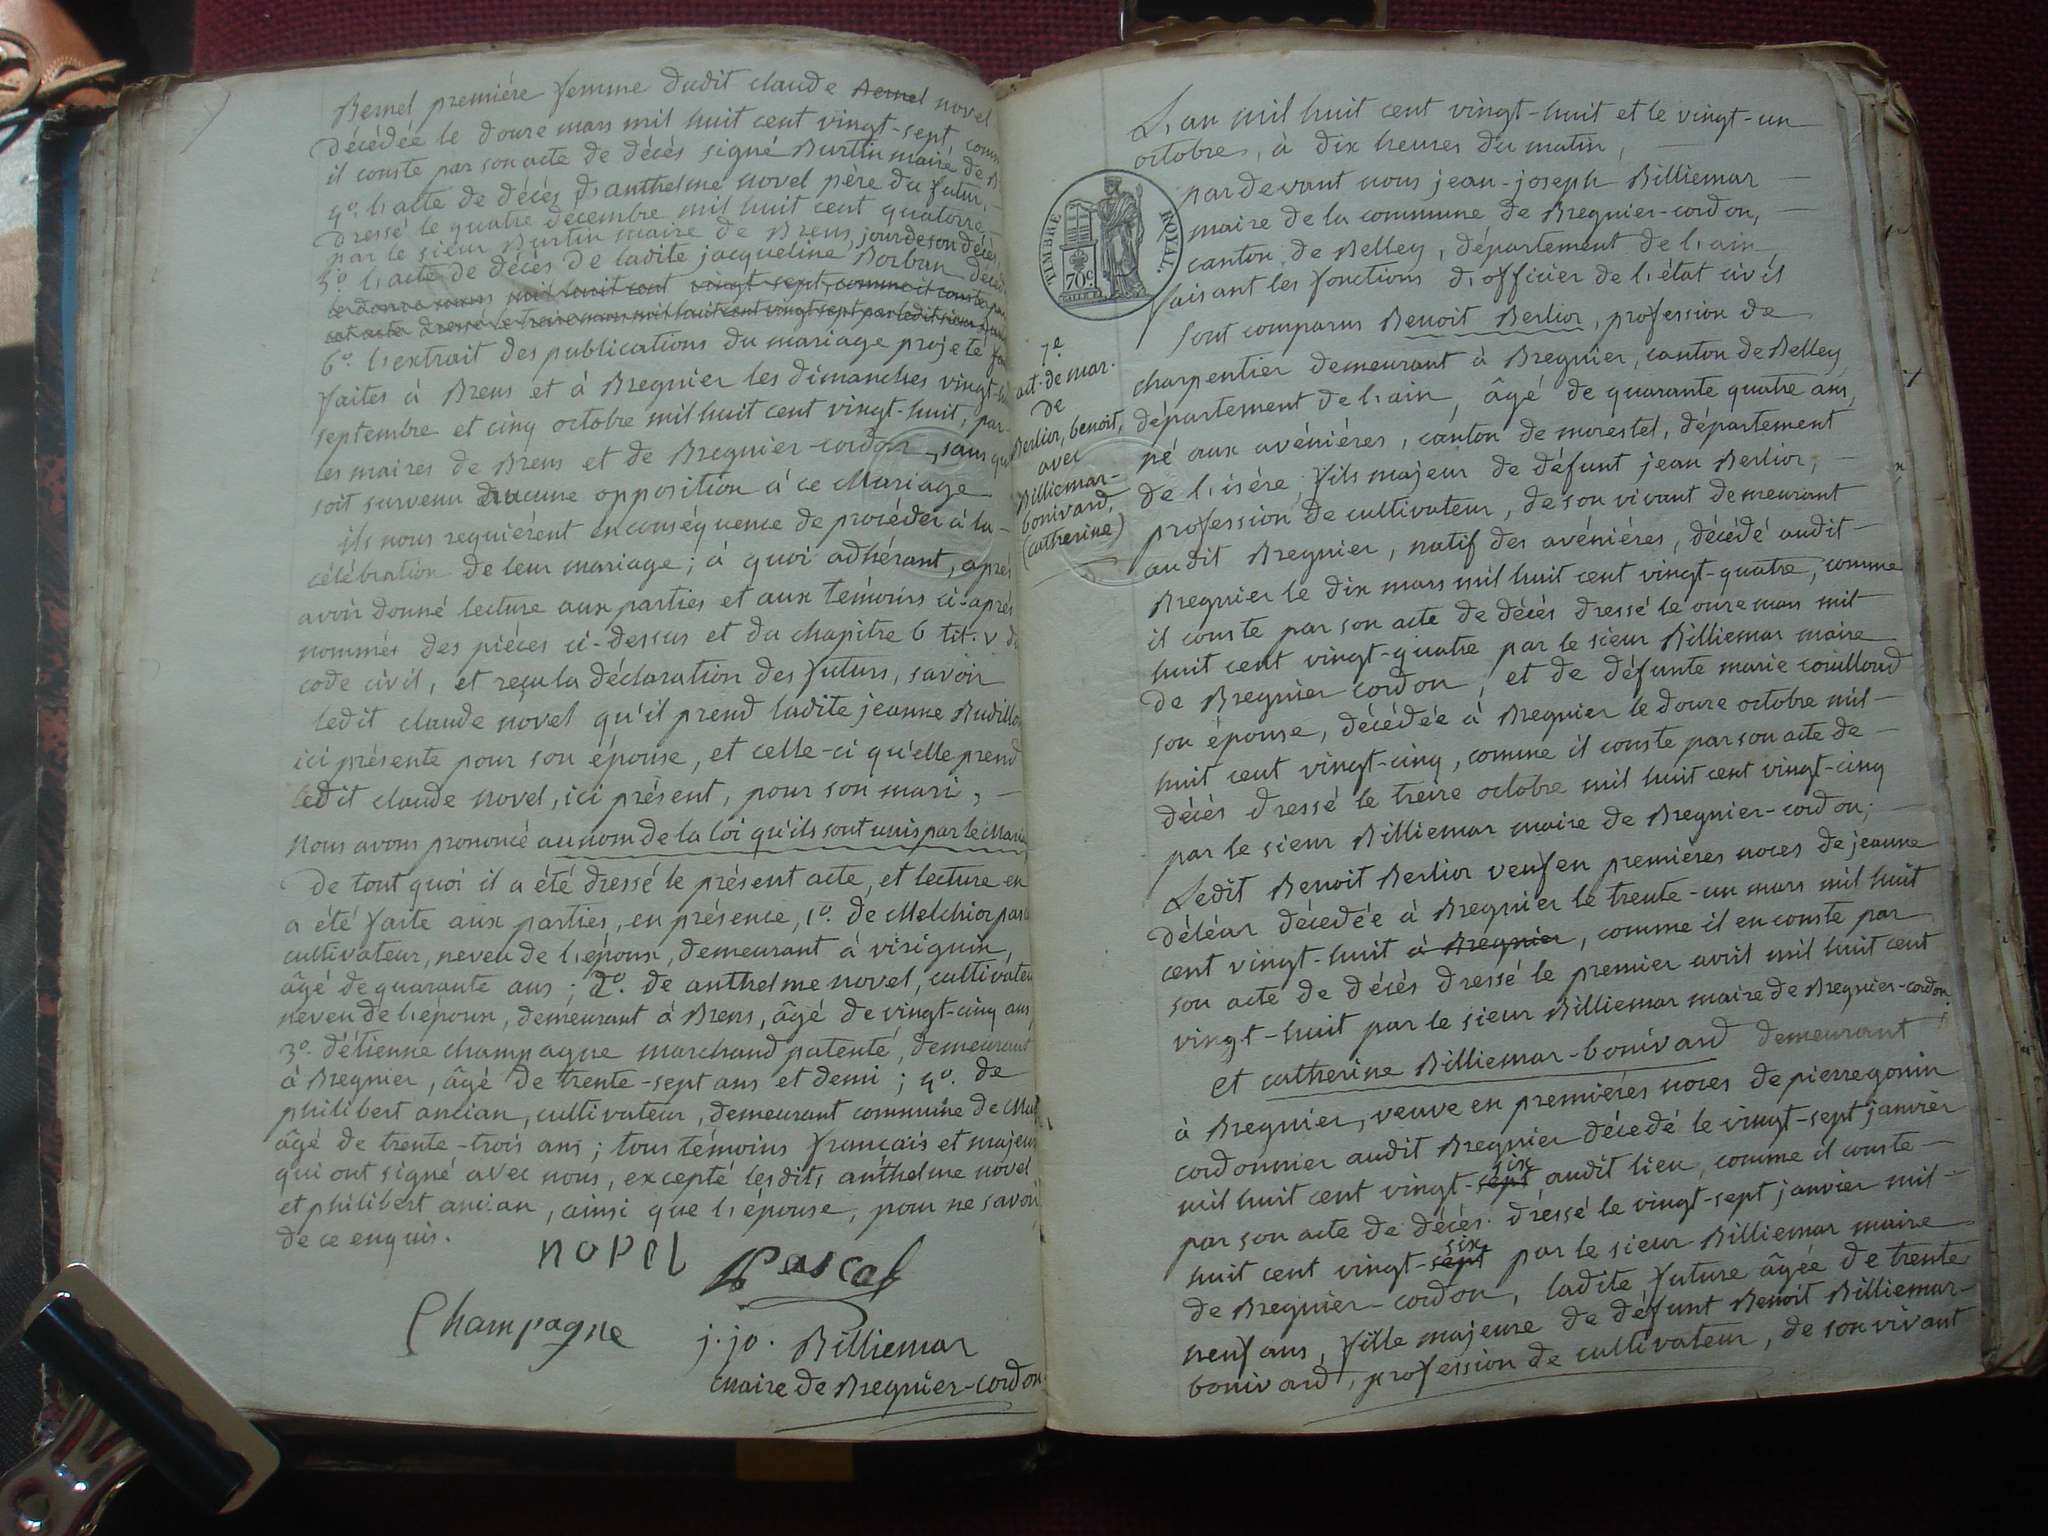 Bernel premiére femme dudit claude Bernel novel
décédée le douze mars mil huit cent vingt-sept, comme
il conste par son acte de décés signé Burtin maire de
4º. l'acte de décés d'anthelme novel père du futur,
dressé le quatre décembre mil huit cent quatorze
par le sieur Burtin maire de Brens, jour de son décès,
5º. l'acte de décés de ladite jacqueline Borban
le douze mars mil huit cent vingt sept, comme il conste par
cet acte dressé le treize mars mil huit cent vingt sept par ledit sieur
6º. l'extrait des publications du mariage projeté
faites à Brens et à Bregnier les dimanches vingt-
septembre et cinq octobre mil huit cent vingt-huit, par
les maires de Brens et de Bregnier-cordon, sans qu
soit survenu aucune opposition à ce Mariage
ils nous requiérent en conséquence de procéder à la
célébration de leur mariage; à quoi adhérant, aprés
avoir donné lecture aux parties et aux témoins ci-aprés
nommés des piéces ci-dessus et du chapitre 6 tit. v du
code civil, et reçu la déclaration des futurs, savoir
ledit claude novel qu'il prend ladite jeanne Budillon
ici présente pour son épouse, et celle-ci qu'elle prend
ledit claude novel, ici présent, pour son mari,
Nous avons prononcé au nom de la loi qu'ils sont unis par le Maria
De tout quoi il a été dressé le présent acte, et lecture en
a été faite aux parties, en présence, 1º. de Melchior pascal
cultivateur, neveu de l'époux, demeurant à virignin,
âgé de quarante ans; 2º. de anthelme novel, cultivateu
neveu de l'époux, demeurant à Brens, âgé de vingt-cinq ans,
3º. d'étienne champagne marchand patenté, demeurant
à Bregnier, âgé de trente-sept ans et demi; 4º. de
philibert ancian, cultivateur, demeurant commune de
âgé de trente-trois ans; tous témoins français et majeur
qui ont signé avec nous, excepté lesdits anthelme novel
et philibert ancian, ainsi que l'épouse, pour ne savoir
de ce enquis.
novel Pascal
Champagne j. jo. Billiemar
maire de Bregnier-cordon
L'an mil huit cent vingt-huit et le vingt-un
octobre, à dix heures du matin,
pardevant nous jean-joseph Billiemar
maire de la commune de Bregnier-cordon,
canton de Belley, département de l'ain
faisant les fonctions d'officier de l'état civil
TIMBRE ROYAL.
70c.
sont comparus Benoit Berlior, profession de
charpentier demeurant à Bregnier, canton de Belley
département de l'ain, âgé de quarante quatre ans,
né aux avéniéres, canton de morestel, département
de l'isére, fils majeur de défunt jean Berlior,
profession de cultivateur, de son vivant demeurant
audit Bregnier, natif des avéniéres, décédé audit
Bregnier le dix mars mil huit cent vingt-quatre, comme
il conste par son acte de décés dressé le onze mars mil
huit cent vingt-quatre par le sieur Billiemar maire
de Bregnier cordon, et de défunte marie couilloud
son épouse, décédée à Bregnier le douze octobre mil
huit cent vingt-cinq, comme il conste par son acte de
décés dressé le treize octobre mil huit cent vingt-cinq
par le sieur Billiemar maire de Bregnier-cordon;
Ledit Benoit Berlior veuf en premiéres noces de jeanne
déléar décédée à Bregnier le trente-un mars mil huit
cent vingt-huit à Bregnier, comme il en conste par
son acte de décés dressé le premier avril mil huit cent
vingt-huit par le sieur Billiemar maire de Bregnier-cordon;
et catherine Billiemar-bonivard demeurant
à Bregnier, veuve en premiéres noces de pierre gonin
cordonnier audit Bregnier décédé le vingt-sept janvier
mil huit cent vingt-sept six, audit lieu, comme il conste
par son acte de décés dressé le vingt-sept janvier mil
huit cent vingt-sept six par le sieur Billiemar maire
de Bregnier-cordon, ladite future âgée de trente
neuf ans, fille majeure de défunt Benoit Billiemar-
bonivard, profession de cultivateur, de son vivant
7e
act. de mar.
de
Berlior, benoit,
avec
Billiemar-
bonivard,
(catherine)